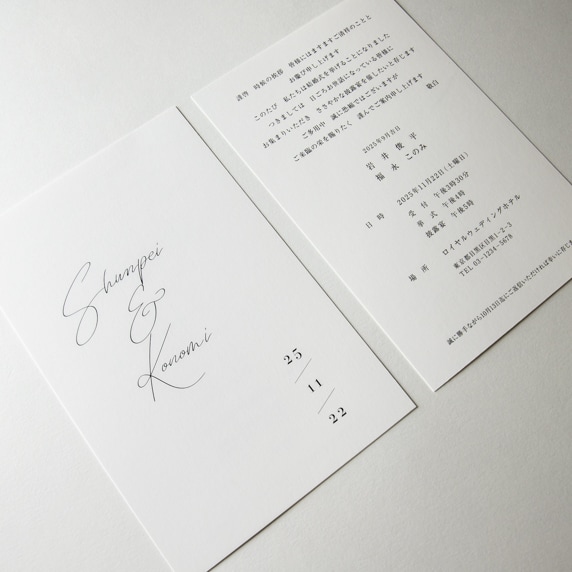 Shunpei
&
Konomi
25
11
22
謹啓　時候の挨拶　皆様にはますますご清祥のことと
お慶び申し上げます
このたび　私たちは結婚式を挙げることになりました
つきましては　日ごろお世話になっている皆様に
お集まりいただき　ささやかな披露宴を催したいと存じます
ご多用中　誠に恐縮ではございますが
ご来臨の栄を賜りたく　謹んでご案内申し上げます
敬白
2025年9月吉日
岩井 俊平
福永 このみ
日時　2025年11月22日(土曜日)
受付　午後3時30分
挙式　午後4時
披露宴　午後5時
場所　ロイヤルウェディングホテル
東京都目黒区目黒1-2-3
TEL 03-1234-5678
誠に勝手ながら10月13日迄にご返信いただければ幸いに存じ